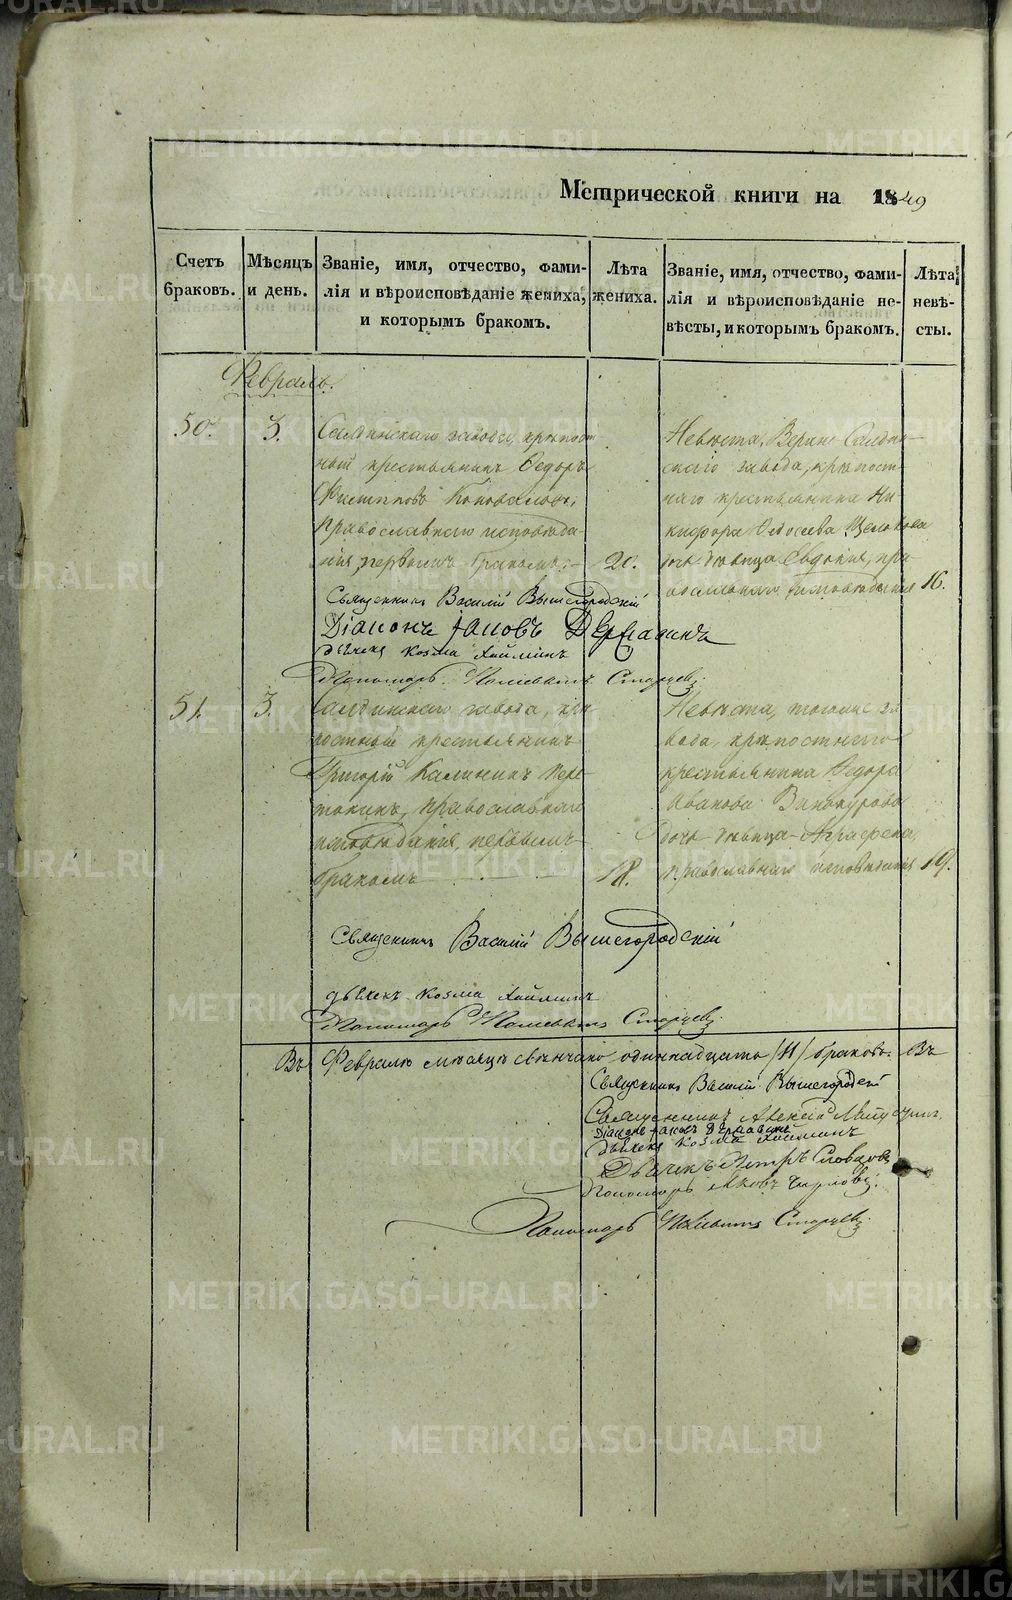 Метрической книги на 1849
Счетъ браковъ.
Мѣсяцъ и день.
Званіе, имя, отчество, фами-
лія и вѣроисповѣданіе жениха,
и которымъ бракомъ.
Лѣта
жениха.
Званіе, имя, отчество, фами-
лія и вѣроисповѣданіе не-
вѣсты, и которымъ бракомъ.
Лѣта
невѣ-
сты.
Февраль.
50. 3.
Салдинскаго завода, крѣпост
ный крестьянинъ Ѳедоръ
Филиповъ Коноваловъ,
православнаго исповѣда
нія, первымъ бракомъ. 20.
Невѣста, Верхне Салдин-
скаго завода, крѣпост-
наго крестьянина Ни-
кифора Ѳедосеева
дочь дѣвица Евдокия, пра-
вославнаго исповѣданія 16.
Священникъ Василій Вышегородскій
Діаконъ Іаковъ Державинъ
дьячекъ Козма
Пономарь Старцевъ.
51. 3.
Салдинскаго завода, крѣ
постный крестьянинъ
Григорій Калининъ Пере-
токинъ, православнаго
исповѣданія, первымъ
бракомъ 18.
Невѣста, тогоже за
вода, крѣпостнаго
крестьянина Ѳедора
Иванова Винокурова
дочь дѣвица Аграфена,
православнаго исповѣданія 19.
Священникъ Василій Вышегородскій
дьячекъ Козма
Пономарь Старцевъ.
Въ Февралѣ мѣсяцѣ свѣнчано одиннадцать /11/ браковъ. Въ
Священникъ Василій Вышегородскій
Священникъ Алексій
Діаконъ Іаковъ Державинъ
Дьячекъ Козма
Дьячекъ Петръ Словцовъ
Пономарь Яковъ
Пономарь Старцевъ.
METRIKI.GASO-URAL.RU